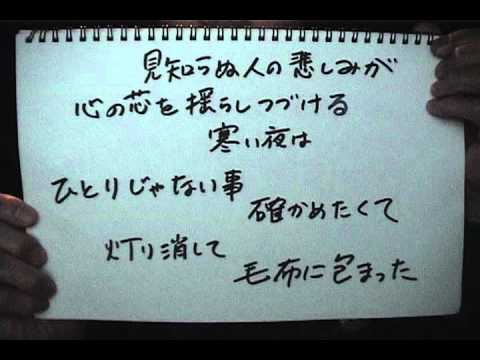 見知らぬ人の悲しみが
心の芯を揺らしつづける
寒い夜は
ひとりじゃない事
確かめたくて
灯り消して
毛布に包まった